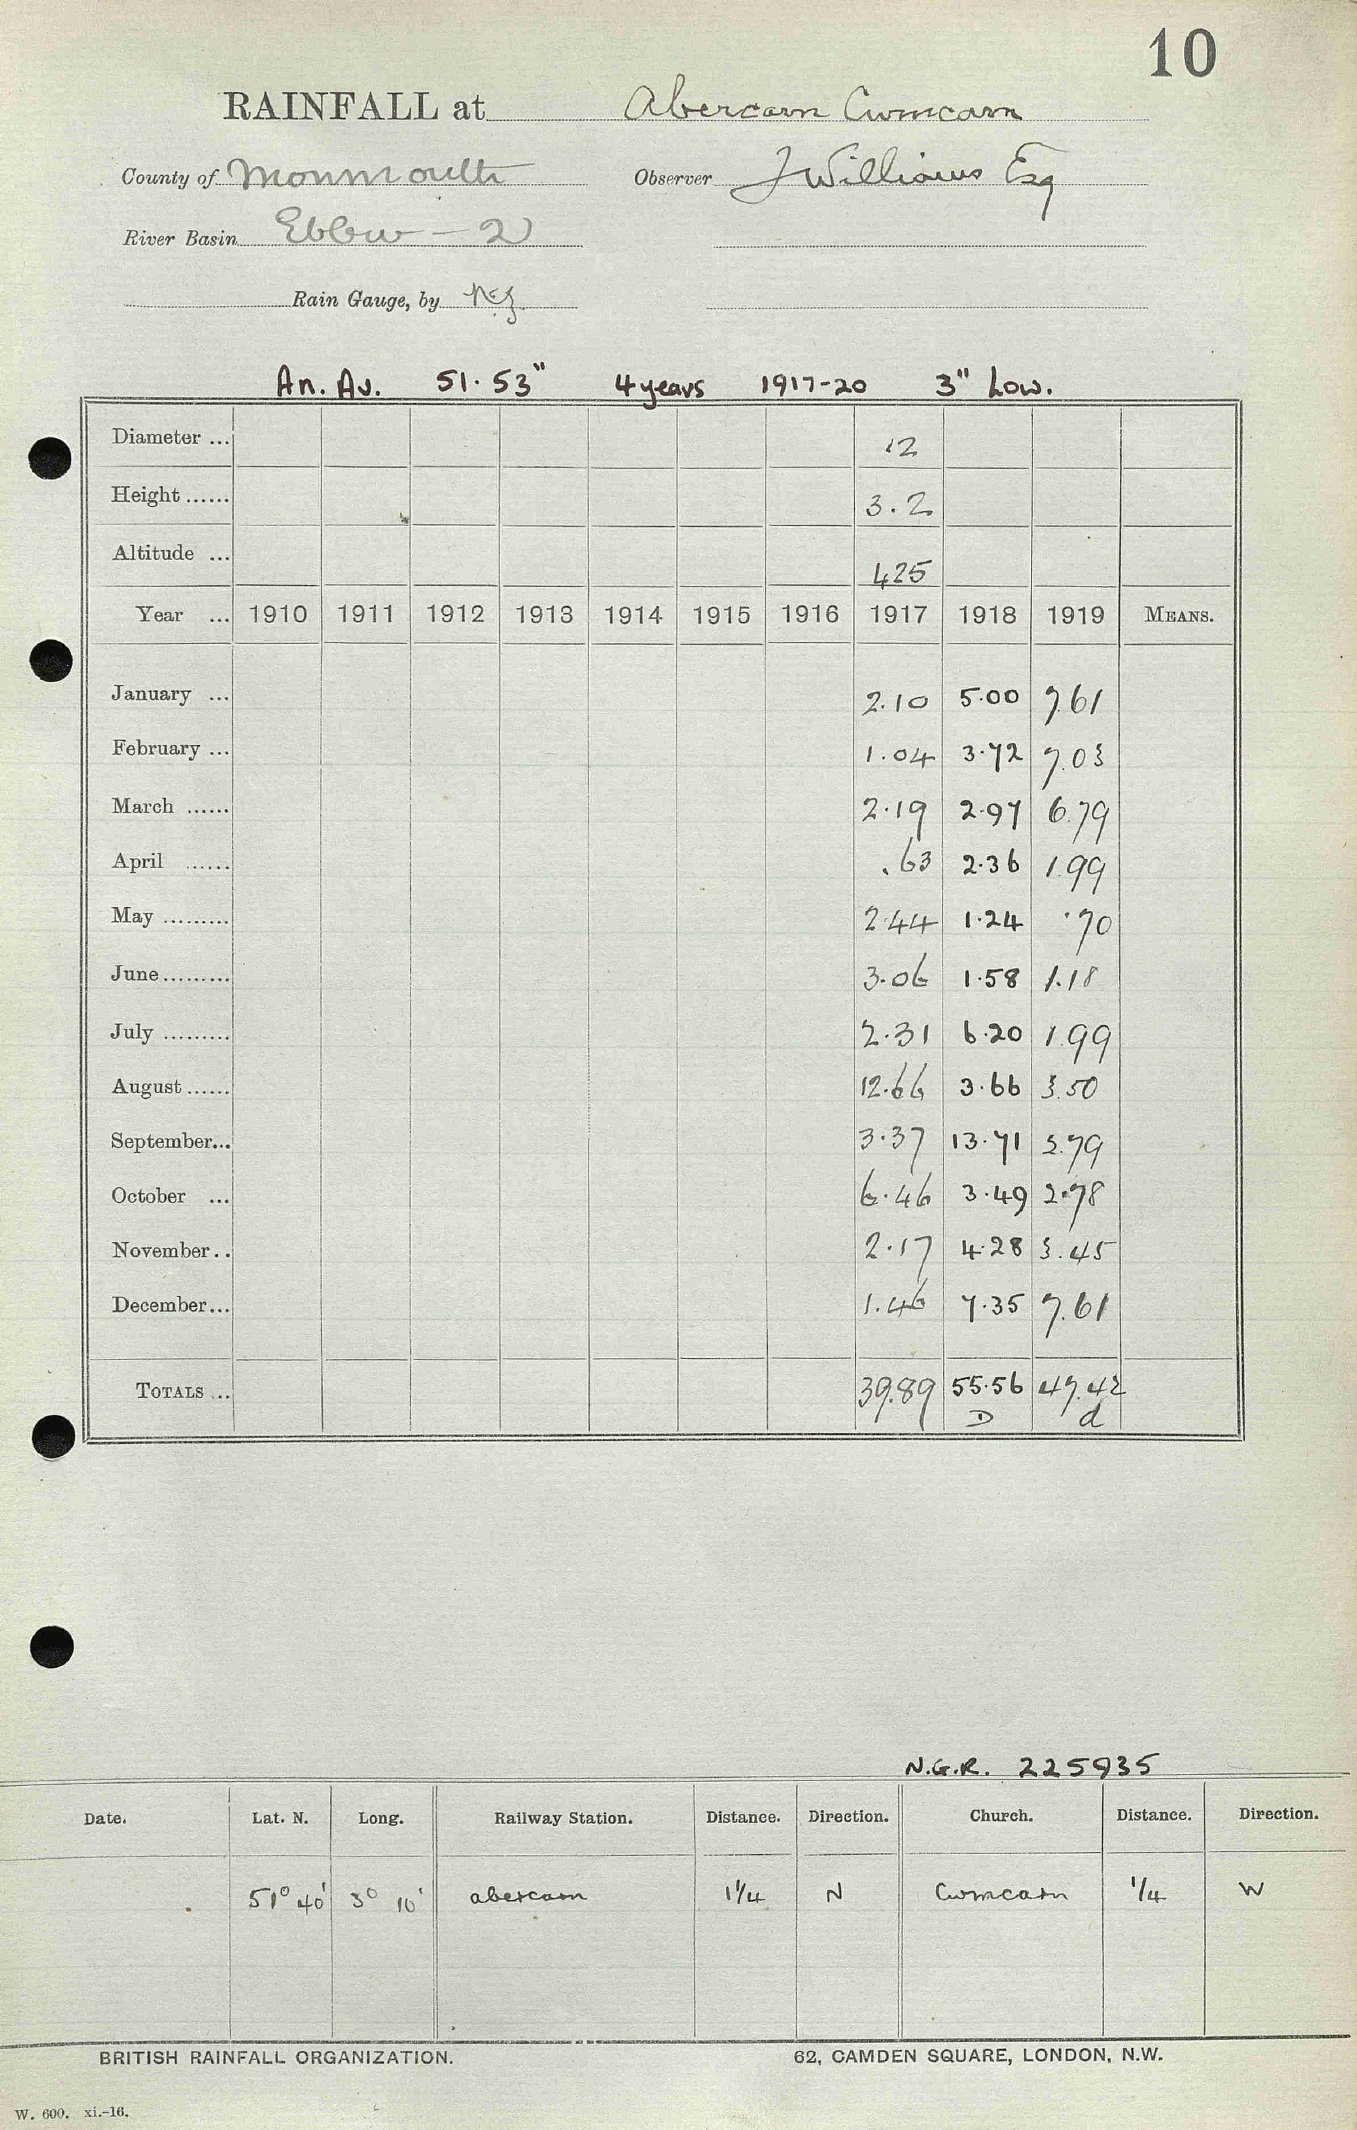 10
RAINFALL at Abercarn Cwmcarn
County of Monmouth Observer J Williams Esq
River Basin Ebbw - 2
Rain Gauge, by
An. Av. 51.53" 4 years 1917-20 3" Low.
Diameter ... 12
Height ...... 3.2
Altitude ... 425
Year ... 1910 1911 1912 1913 1914 1915 1916 1917 1918 1919 MEANS.
January ... 2.10 5.00 7.61
February ... 1.04 3.72 7.03
March ...... 2.19 2.97 6.79
April ...... .63 2.36 1.99
May ......... 2.44 1.24 .70
June ......... 3.06 1.58 1.18
July ......... 2.31 6.20 1.99
August ...... 12.66 3.66 3.50
September... 3.37 13.71 2.79
October ... 6.46 3.49 2.78
November.. 2.17 4.28 3.45
December... 1.46 7.35 7.61
TOTALS ... 39.89 55.56 47.42
D d
N.G.R. 225935
Date. Lat. N. Long. Railway Station. Distance. Direction. Church. Distance. Direction.
51° 40' 3° 10' abercarn 1 1/4 N Cwmcarn 1/4 W
BRITISH RAINFALL ORGANIZATION. 62, CAMDEN SQUARE, LONDON, N.W.
W. 600. xi.-16.